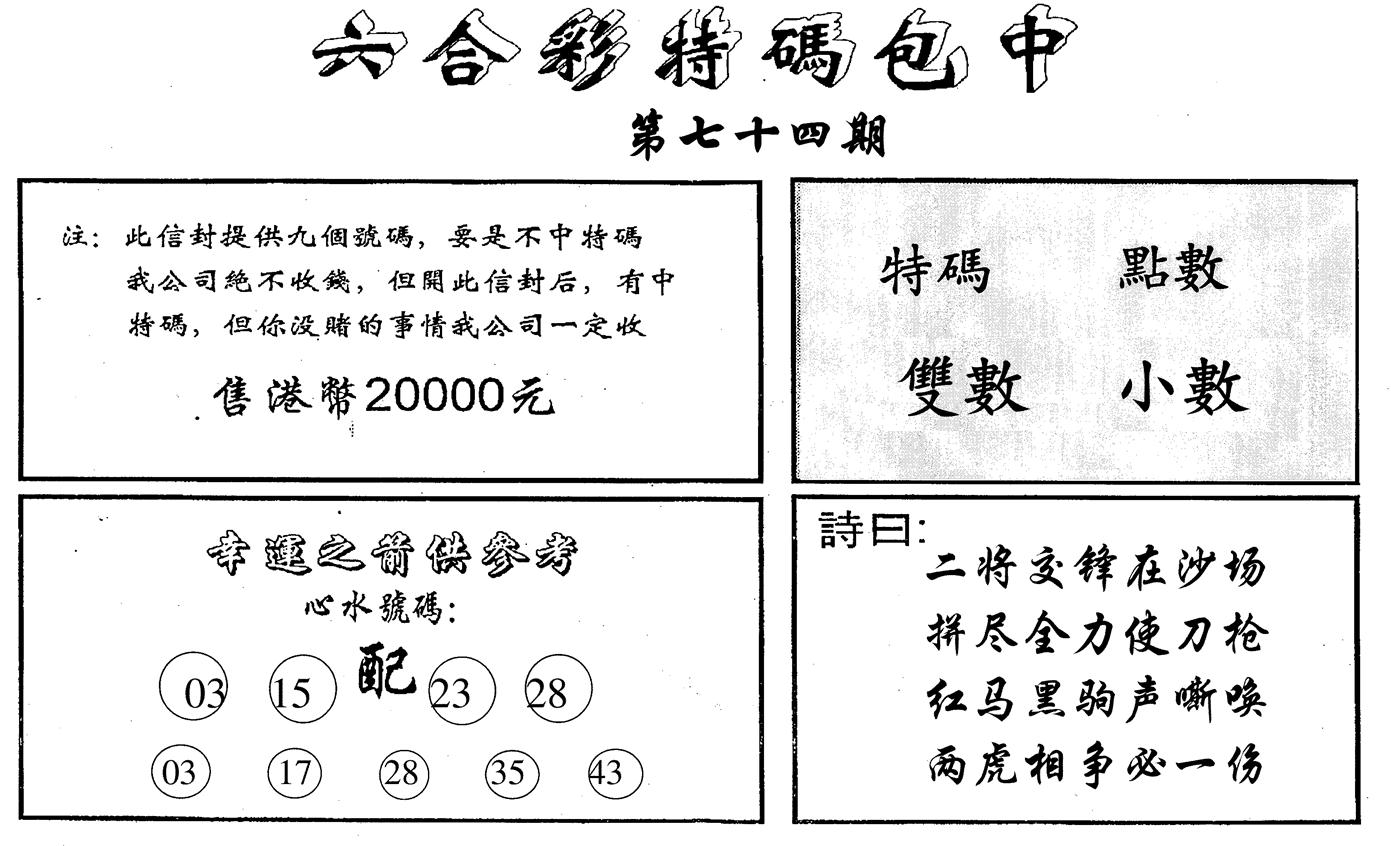 六合彩特碼包中
第七十四期
注：此信封提供九個號碼，要是不中特碼
我公司絶不收錢，但開此信封后，有中
特碼，但你没賭的事情我公司一定收
售港幣20000元
特碼 點數
雙數 小數
幸運之箭供參考
心水號碼：
03 15 配 23 28
03 17 28 35 43
詩曰：
二将交锋在沙场
拼尽全力使刀枪
红马黑驹声嘶唤
两虎相争必一伤